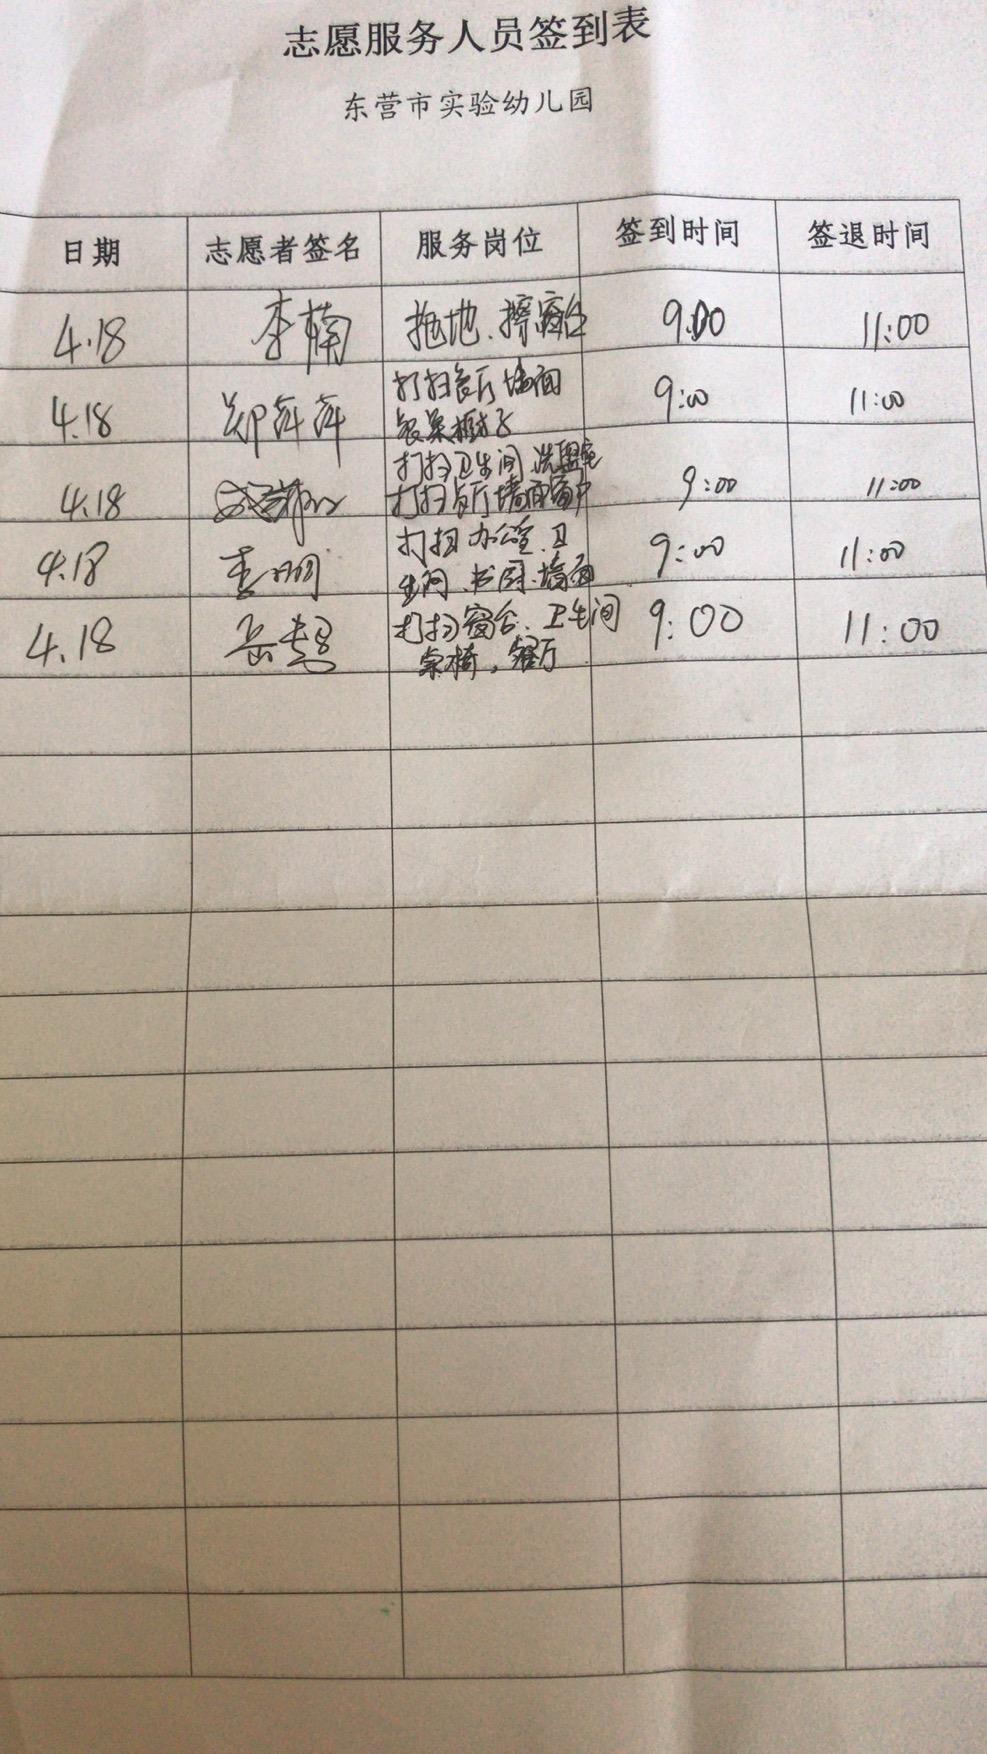 志愿服务人员签到表
东营市实验幼儿园
日期 志愿者签名 服务岗位 签到时间 签退时间
4.18 李楠 拖地、擦窗台 9:00 11:00
4.18 郑萍萍 打扫餐厅墙面
桌子 9:00 11:00
打扫卫生间 洗盥室
4.18 打扫餐厅墙面窗户 9:00 11:00
4.18 打扫办公室、卫
生间、书厨、墙面 9:00 11:00
4.18 岳超 打扫窗台、卫生间
桌椅，餐厅 9:00 11:00